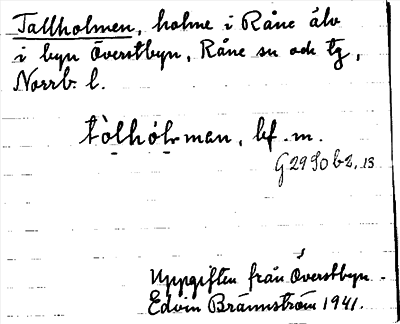 Tallholmen, holme i Råne älv
i byn Överstbyn, Råne sn och tg,
Norrb. l.
tòlhólman, bf. m.
G 2990 b 2, 13
Uppgiften från Överstbyn.
Edvin Brännström 1941.